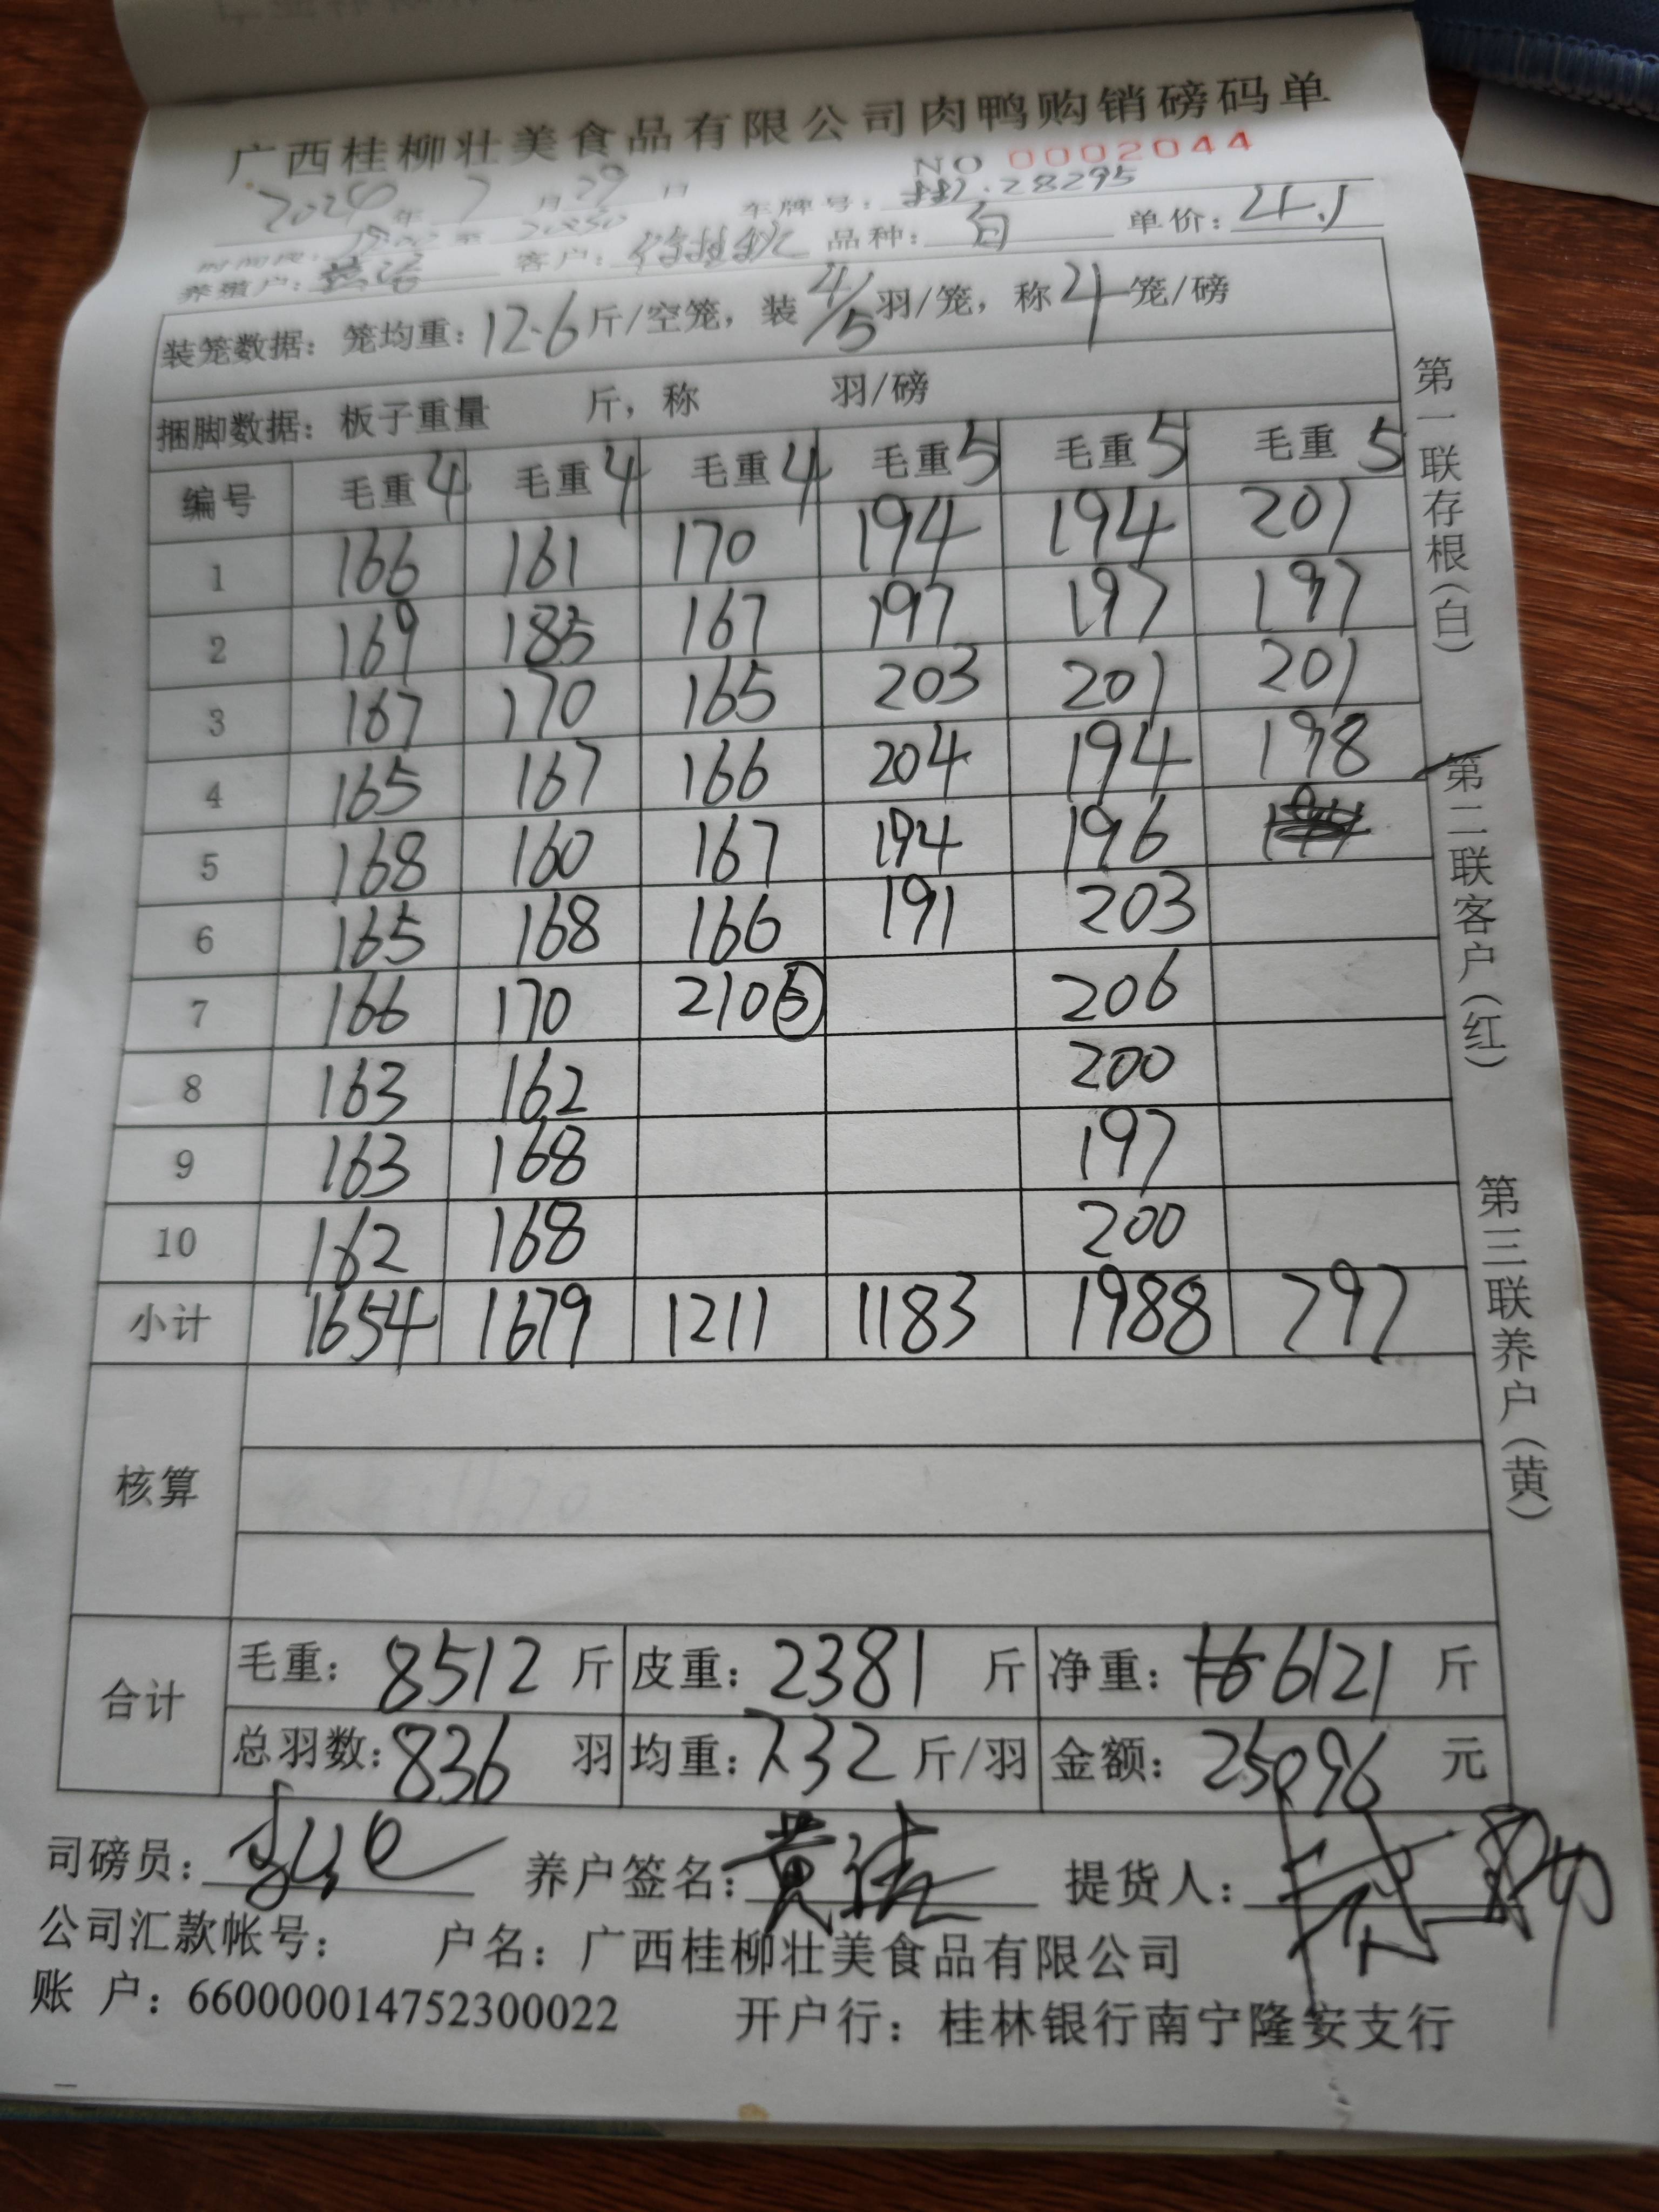 广西桂柳壮美食品有限公司肉鸭购销磅码单
NO 0002044
年 7 月 29 日 车牌号: 28295
养殖户: 客户: 品种: 白 单价: 4.1
装笼数据: 笼均重: 12.6 斤/空笼, 装 4/5 羽/笼, 称 4 笼/磅
捆脚数据: 板子重量 斤, 称 羽/磅
编号 毛重4 毛重4 毛重4 毛重5 毛重5 毛重5
1 166 161 170 194 194 201
2 169 185 167 197 197 197
3 167 170 165 203 201 201
4 165 167 166 204 194 198
5 168 160 167 194 196
6 165 168 166 191 203
7 166 170 210⑤ 206
8 163 162 200
9 163 168 197
10 162 168 200
小计 1654 1679 1211 1183 1988 797
核算
合计 毛重: 8512 斤 皮重: 2381 斤 净重: 6121 斤
总羽数: 836 羽 均重: 7.32 斤/羽 金额: 25096 元
司磅员: 养户签名: 黄 提货人:
公司汇款帐号: 户名: 广西桂柳壮美食品有限公司
账 户: 660000014752300022 开户行: 桂林银行南宁隆安支行
第一联存根(白) 第二联客户(红) 第三联养户(黄)